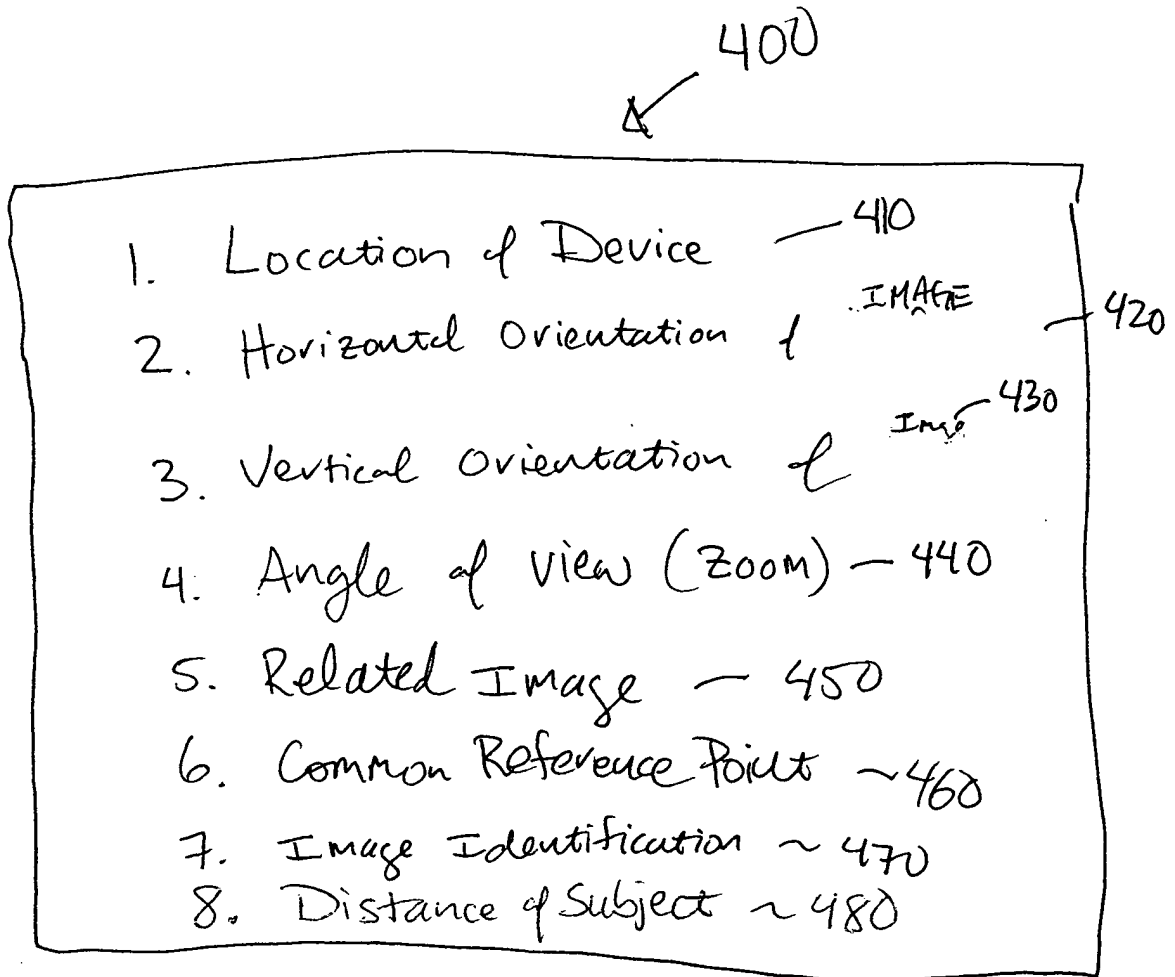 400
1. Location of Device — 410
2. Horizontal Orientation of IMAGE — 420
3. Vertical Orientation of Image — 430
4. Angle of view (Zoom) — 440
5. Related Image — 450
6. Common Reference Point ~ 460
7. Image Identification ~ 470
8. Distance of Subject ~ 480